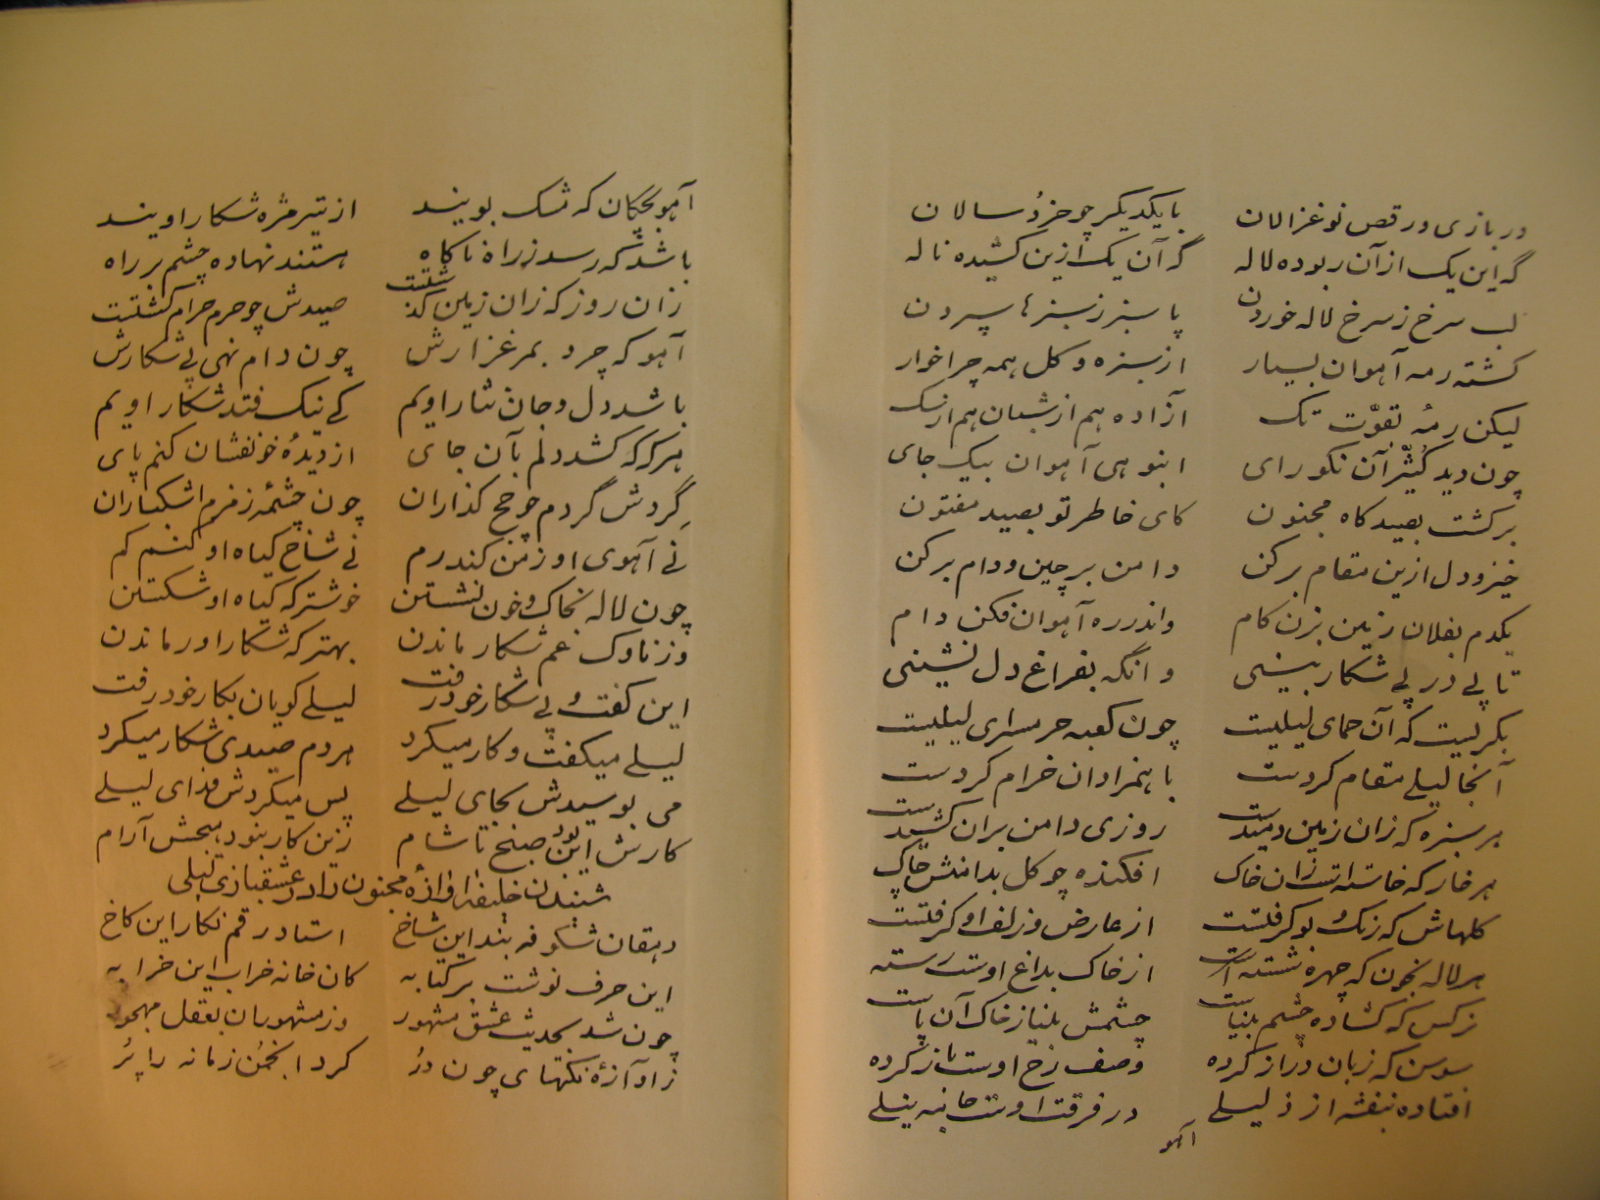 در بازی و رقص نو غزالان با یکدیگر چو خردسالان
گه این یک از آن ربوده لاله گه آن یک ازین کشیده ناله
لب سرخ ز سرخ لاله خوردن پا سبز ز سبزها سپردن
گشته رمه آهوان بسیار از سبزه و گل همه چراخوار
لیکن رمهٔ تقوّت تک آزاده هم از شبان هم از سگ
چون دید کثیّر آن نکورای انبوهی آهوان بیک جای
برگشت بصیدگاه مجنون کای خاطر تو بصید مفتون
خیز و دل ازین مقام برکن دامن برچین و دام برکن
یکدم بفلان زمین بزن گام واندر ره آهوان فکن دام
تا پی در پی شکار بینی وانگه بفراغ دل نشینی
بگریست که آن حمای لیلیست چون کعبه حرمسرای لیلیست
آنجا لیلی مقام کردست با همزادان خرام کردست
هر سبزه که زان زمین دمیدست روزی دامن بران کشیدست
هر خار که خاسته است زان خاک افکنده چو گل بدامنش چاک
گلهاش که رنگ و بو گرفتست از عارض و زلف او گرفتست
هر لاله بخون که چهره شسته است از خاک بداغ اوست رسته
نرگس که گشاده چشم بیناست چشمش بنیاز خاک آن پاست
سوسن که زبان دراز کرده وصف رخ اوست باز کرده
افتاده بنفشه از ذلیلی در فرقت اوست جامه نیلی
آهو
آهو بچگان که مشک بویند از تیر مژه شکار اویند
باشد که رسد ز راه ناگاه هستند نهاده چشم بر راه
زان روز که زان زمین گذشتست صیدش چو حرم حرام گشتست
آهو که چرد بمرغزارش چون دام نهی پی شکارش
باشد دل و جان نثار اویم کی نیک فتد شکار اویم
هرگه که کشد دلم بآن جای از دیدهٔ خونفشان کنم پای
گردش گردم چو حج گذاران چون چشمهٔ زمزم اشکباران
نی آهوی او ز من کند رم نی شاخ گیاه او کنم کم
چون لاله بخاک و خون نشستن خوشتر که گیاه او شکستن
وز ناوک غم شکار ماندن بهتر که شکار او رماندن
این گفت و پی شکار خود رفت لیلی گویان بکار خود رفت
لیلی میگفت و کار میکرد هردم صیدی شکار میکرد
می بوسیدش بجای لیلی پس میکردش فدای لیلی
کارش این بود صبح تا شام زین کار نبود هیچش آرام
شنیدن خلیفه آوازهٔ مجنون را در عشقبازی لیلی
دهقان شکوفه بند این شاخ استاد رقم نگار این کاخ
این حرف نوشت بر کتابه کان خانه خراب این خرابه
چون شد بحدیث عشق مشهور وز مشهوران بعقل مهجور
ز آوازهٔ نکتهای چون دُر کرد انجمن زمانه را پُر